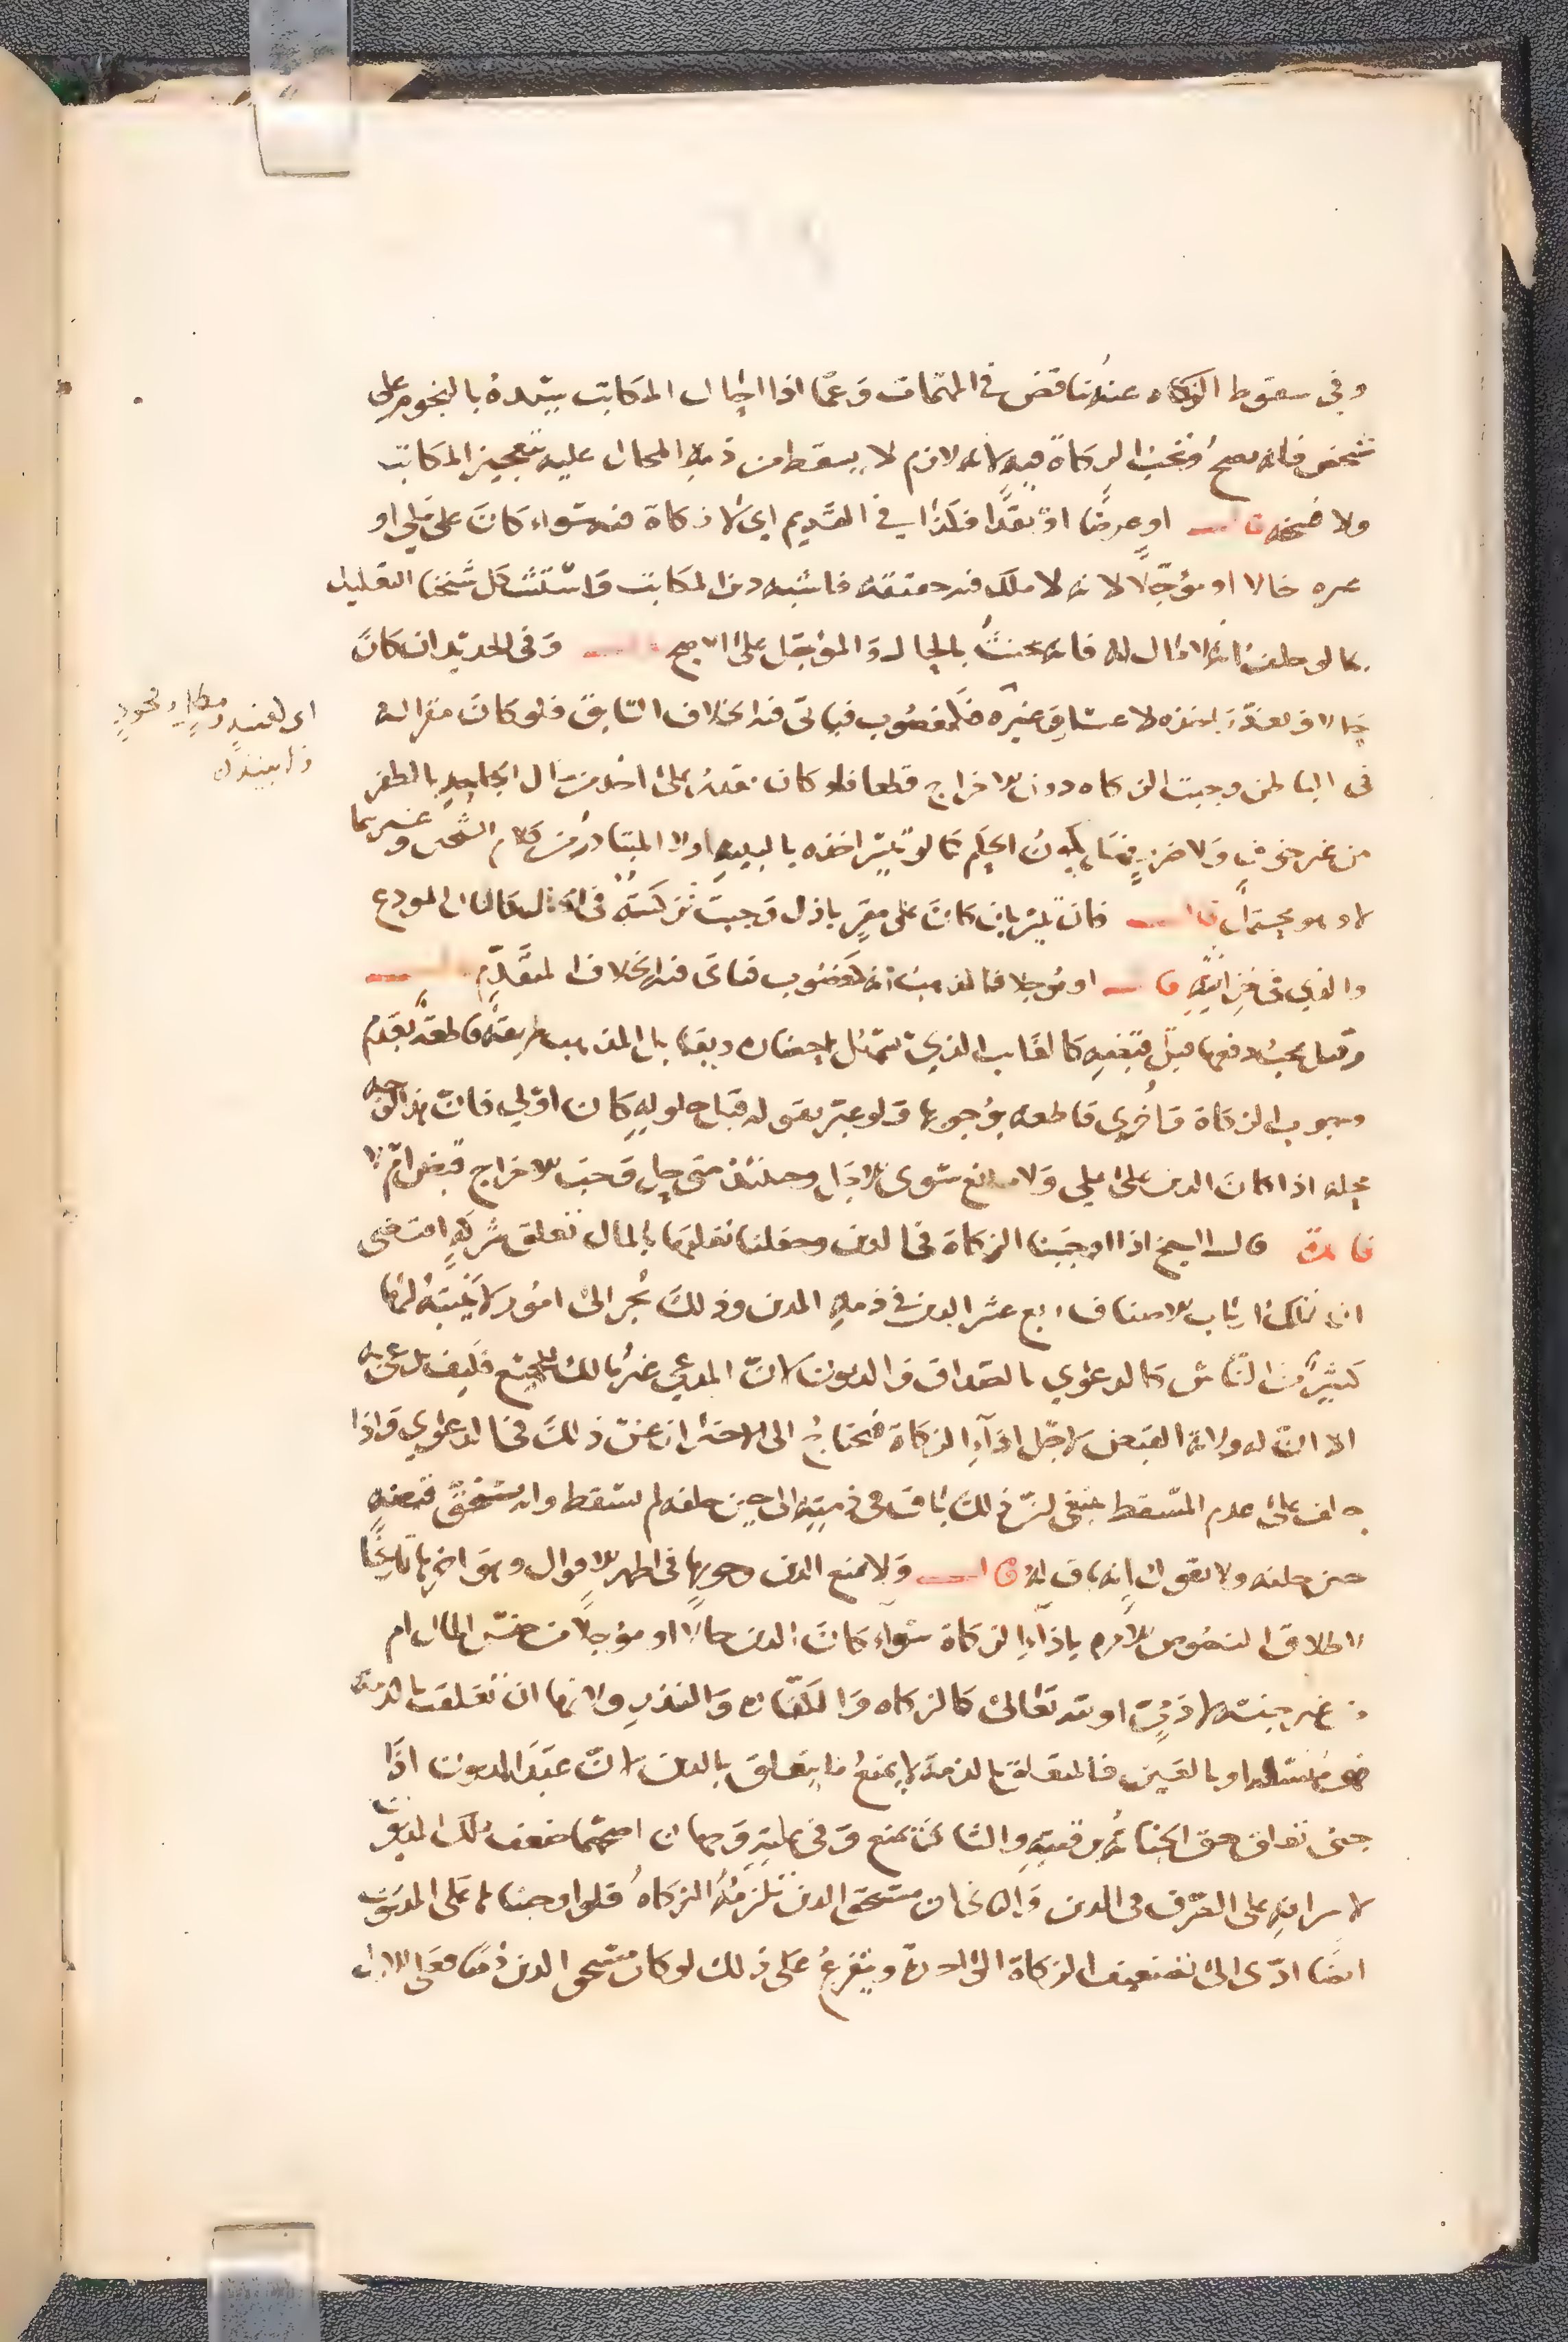 وفي سقوط الزكاه عنه تناقض في المهمات وعما اذا احال المكاتب سيده بالنجوم على
شخص فانه يصح وتجب الزكاة فيه لانه لازم لا يسقط من ذمة المحال عليه بتعجيز المكاتب
ولا فسخه قال او عرضا او نقدا فكذا في القديم اي لا زكاة فيه سواء كان على ملي او
غيره حالا او مؤجلا لانه لا ملك فيه حقيقة فاشبه دين المكاتب واستشكل شيخنا التعليل
بما لو حلف انه لا مال له فانه يحنث بالحال والمؤجل على الاصح قال وفي الجديد ان كان
حالا وتعذر اخذه لاعسار وغيره فكمغصوب فياتي فيه الخلاف السابق فلو كان مقرا له
اي لغيبة ومطل وجحود
ولا بينة له
في الباطن وجبت الزكاه دون الاخراج قطعا فلو كان يقدر على اخذه من مال الجاحد بالظفر
من غير خوف ولا ضرر يكون الحكم كما لو تيسر اخذه بالبينة اولا المتبادر من كلام الشيخين وغيرهما
لا وهو محتمل قال فان تيسر بان كان على مقر باذل وجبت تزكيته في الحال كالمال المودع
والذي في خزانته قال او مؤجلا فالمذهب انه كمغصوب فياتي فيه الخلاف المتقدم قال
وقيل يجب دفعها قبل قبضه كالغائب الذي تسهل احضاره بان المذهب طريقة قاطعة بعدم
وجوب الزكاة واخرى قاطعه بوجوبها ولو عبر بقوله قبل حلوله كان اولى فان هذا الوجه
محله اذا كان الدين على ملي ولا مانع سوى الاجل وحينئذ متى حل وجب الاخراج قبض ام لا
فائدة قال السبكي اذا اوجبنا الزكاة في الدين وجعلنا تعلقها بالمال تعلق شركة اقتضى
ان يملك ارباب الاصناف ربع عشر الدين في ذمة المدين وذلك يجر الى امور لا يتنبه لها
كثير من الناس كالدعوى بالصداق والديون لان المدعي غير مالك للجميع فكيف يدعي به
الا ان له ولاية القبض لاجل اداء الزكاة فيحتاج الى الاحتراز عن ذلك في الدعوى واذا
حلف على عدم المسقط ينبغي ان ذلك باق في ذمته الى حين حلفه لم يسقط وانه يستحق قبضه
حين حلفه ولا يقول انه باق له قال ولا يمنع الدين وجوبها في اظهر الاقوال وهو اخرها تاريخا
لاطلاق النصوص الامرة باداء الزكاة سواء كان الدين حالا او مؤجلا من جنس المال ام
من غير جنسه لادمي او لله تعالى كالزكاه والكفارة والنذر ولانها ان تعلقت بالذمة
فهي متسعة او بالعين فالمتعلق بالذمة لا يمنع ما يتعلق بالدين لان عبد المديون اذا
جنى تعلق حق الجناية برقبته والثاني يمنع وفي علته وجهان اصحهما ضعف ملك المديون
لاسرافه على التصرف في الدين والثاني ان مستحق الدين تلزمه الزكاه فلو اوجبناها على المديون
ايضا ادى الى تضعيف الزكاة في المال ويتفرع على ذلك لو كان مستحق الدين ذميا فعلى الاول